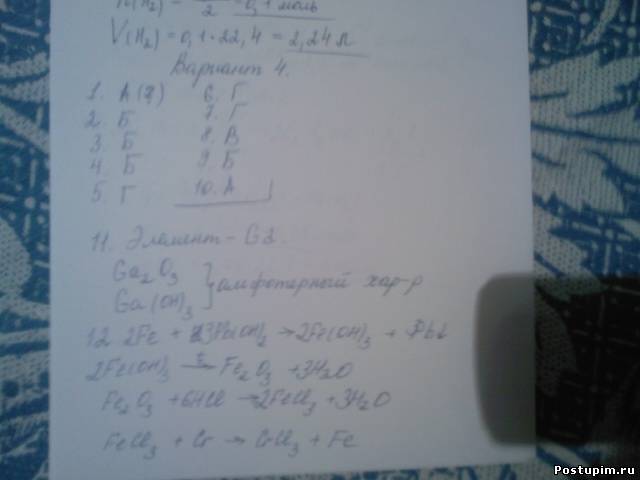 n(H₂) = 2 = 0,1 моль
V(H₂) = 0,1·22,4 = 2,24 л
Вариант 4.
1. А (?) 6. Г
2. Б 7. Г
3. Б 8. В
4. Б 9. Б
5. Г 10. А
11. Элемент - Ga.
Ga₂O₃
Ga(OH)₃ } амфотерный хар-р
12. 2Fe + 3Pb(OH)₂ → 2Fe(OH)₃ + Pb↓
2Fe(OH)₃ → Fe₂O₃ + 3H₂O
Fe₂O₃ + 6HCl → 2FeCl₃ + 3H₂O
FeCl₃ + Cr → CrCl₃ + Fe
Postupim.ru